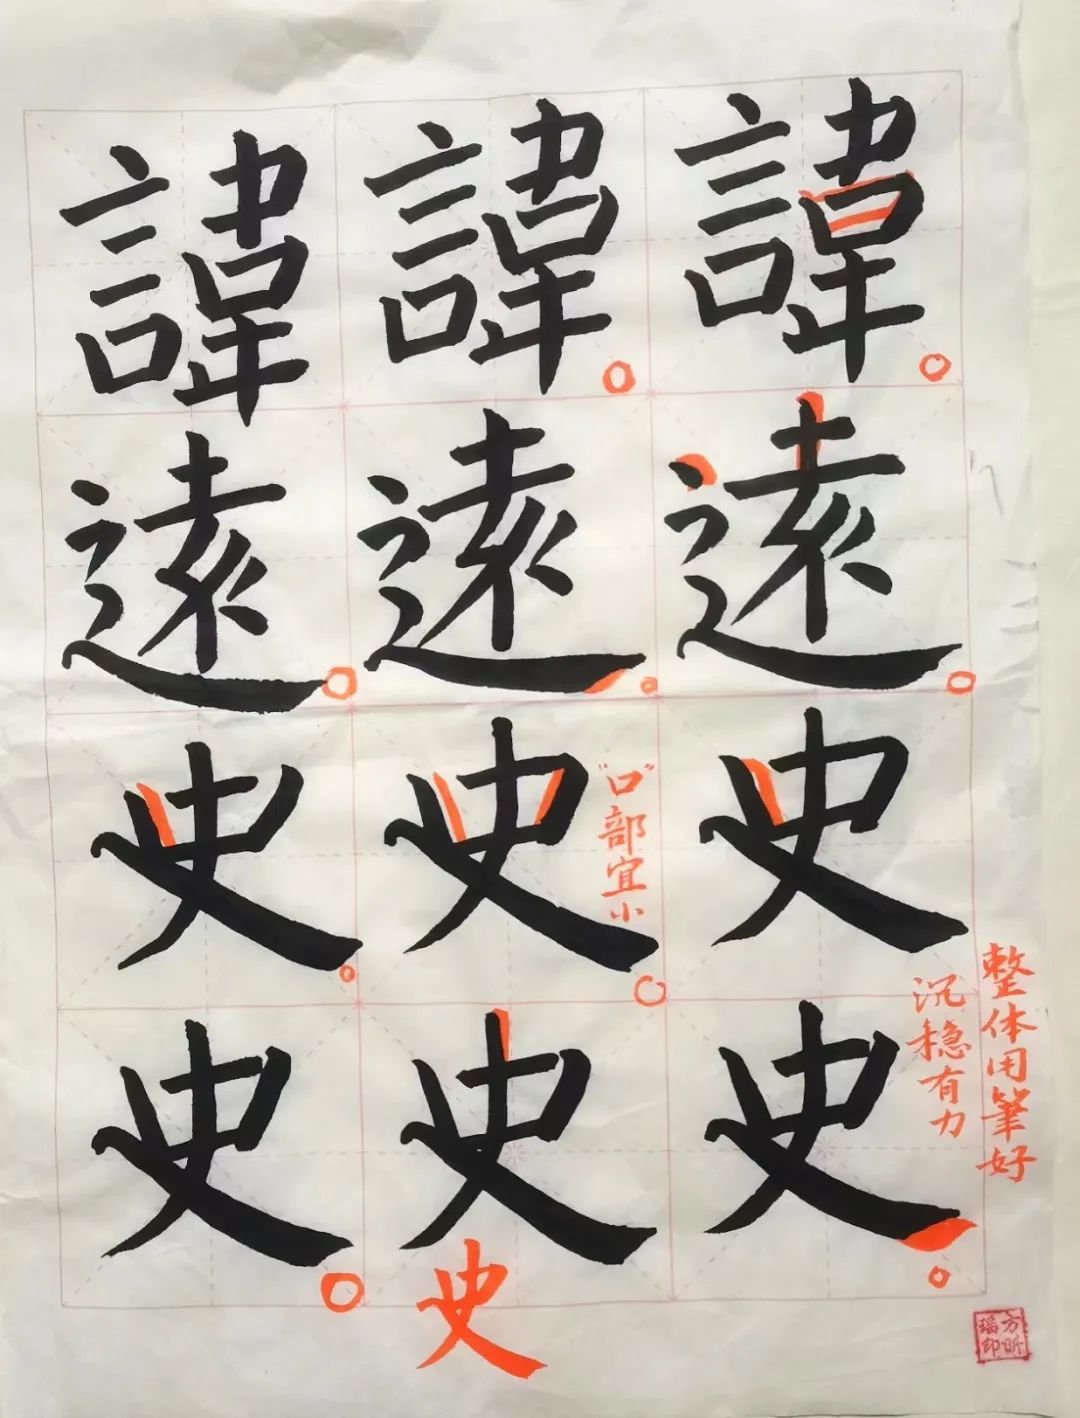 諱 諱 諱
遠 遠 遠
史 史 史
史 史 史
"口"部宜小
整体用筆好
沉稳有力
史
方昕
瑶印